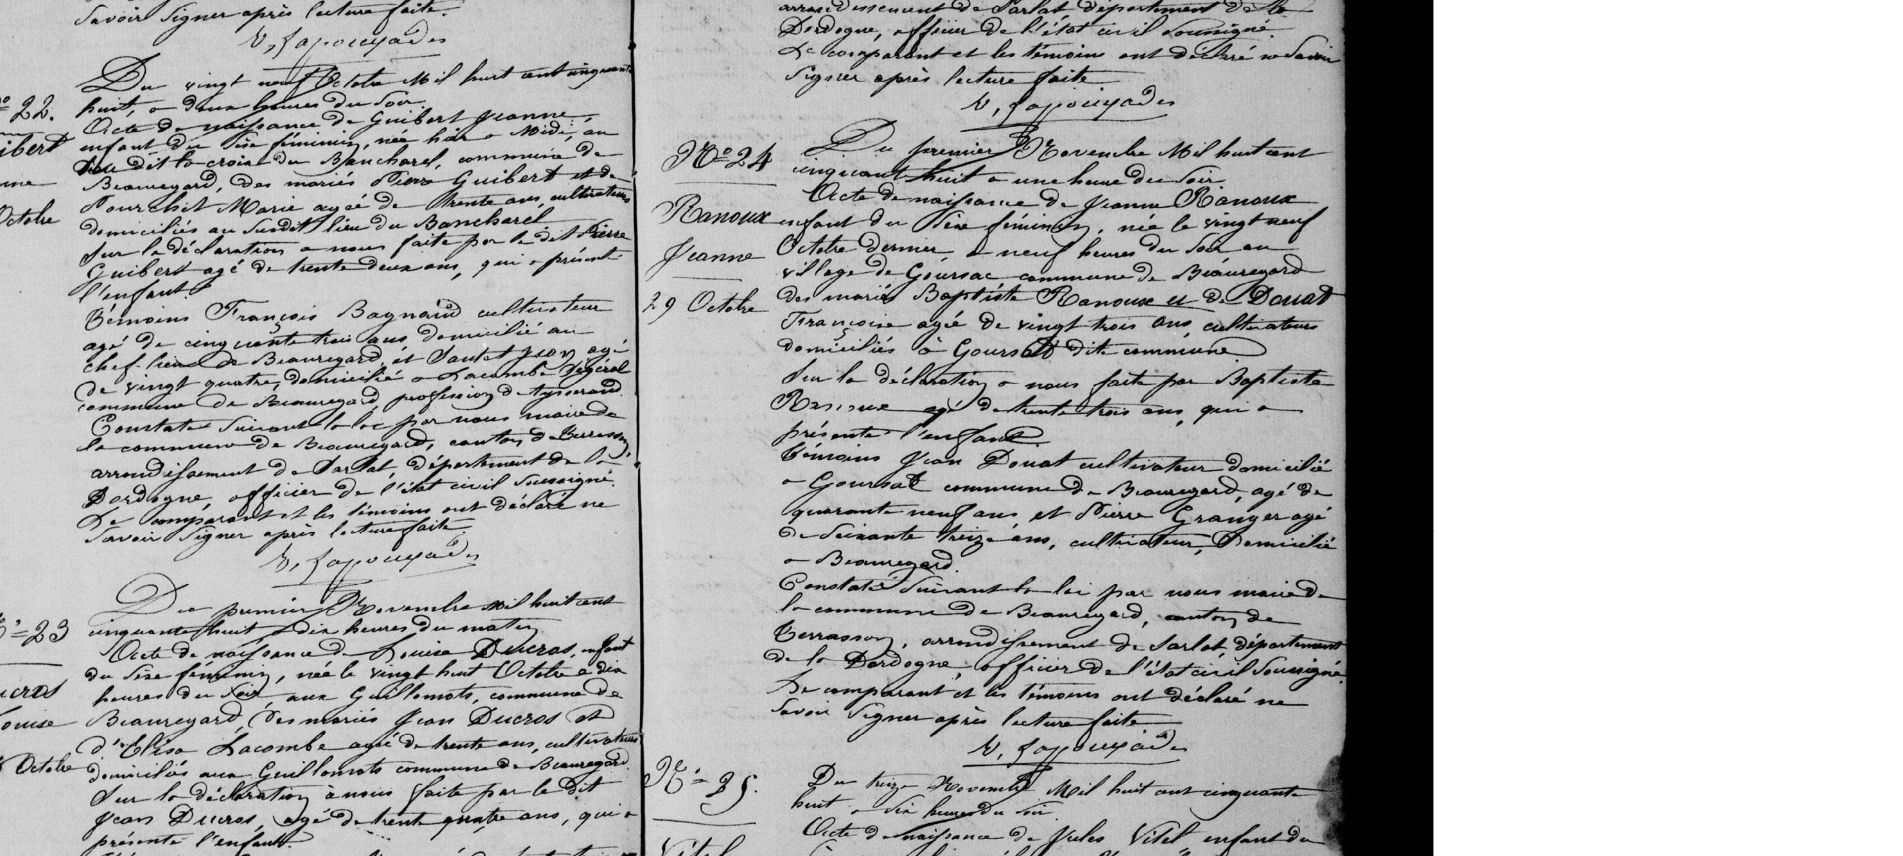 Savoir Signer après lecture faite.
V. Lapouyade
N° 22.
Guibert
Octobre
Du vingt neuf Octobre Mil huit cent cinquante
huit, a deux heures du Soir.
Acte de naissance de Guibert Jeanne,
enfant du Sexe féminin, née hier a Midi, au
lieu dit la croix du Bancharel, commune de
Beauregard, des mariés Pierre Guibert et de
Marie agée de trente ans, cultivateurs
domiciliés au Susdit lieu du Bancharel
Sur la déclaration a nous faite par le dit Pierre
Guibert agé de trente deux ans, qui a présenté
l'enfant.
Témoins François Bagnaud cultivateur
agé de cinquante trois ans, domicilié au
chef-lieu de Beauregard, et Sautet Jean agé
de vingt quatre, domicilié a Lacombe
commune de Beauregard profession de tisserand.
Constaté Suivant la loi par nous maire de
la commune de Beauregard, canton de Terrasson,
arrondissement de Sarlat, département de la
Dordogne, officier de l'état civil Soussigné.
Le comparant et les témoins ont déclaré ne
Savoir Signer après lecture faite
V. Lapouyade
N° 23
Ducros
Louise
Octobre
Du premier Novembre Mil huit cent
cinquante huit a dix heures du matin
Acte de naissance de Louise Ducros, enfant
du Sexe féminin, née le vingt huit Octobre a dix
heures du Soir, aux Guillomots, commune de
Beauregard, des mariés Jean Ducros et
d'Elisa Lacombe agée de trente ans, cultivateurs
domiciliés aux Guillomots commune de Beauregard.
Sur la déclaration à nous faite par le dit
Jean Ducros, agé de trente quatre ans, qui a
présenté l'enfant.
arrondissement de Sarlat, département de la
Dordogne, officier de l'état civil Soussigné.
Le comparant et les témoins ont déclaré ne Savoir
Signer après lecture faite
V. Lapouyade
N° 24
Ranoux
Jeanne
29 Octobre
Du premier Novembre Mil huit cent
cinquante huit a une heure du Soir
Acte de naissance de Jeanne Ranoux
enfant du Sexe féminin, née le vingt neuf
Octobre dernier, a neuf heures du Soir au
village de Goursac commune de Beauregard
des mariés Baptiste Ranoux et de Douat
Françoise agée de vingt trois ans, cultivateurs
domiciliés à Goursat dite commune
Sur la déclaration a nous faite par Baptiste
Ranoux agé de trente trois ans, qui a
présenté l'enfant.
Témoins Jean Douat cultivateur domicilié
a Goursat commune de Beauregard, agé de
quarante neuf ans et Pierre Granger agé
de Soixante treize ans, cultivateur, Domicilié
a Beauregard.
Constaté Suivant la loi par nous maire de
la commune de Beauregard, canton de
Terrasson, arrondissement de Sarlat, département
de la Dordogne, officier de l'état civil Soussigné.
Le comparant et les témoins ont déclaré ne
Savoir Signer après lecture faite
V. Lapouyade
N° 25.
Vitel
Du treize Novembre Mil huit cent cinquante
huit a Six heures du Soir.
Acte de naissance de Jules Vitel enfant du